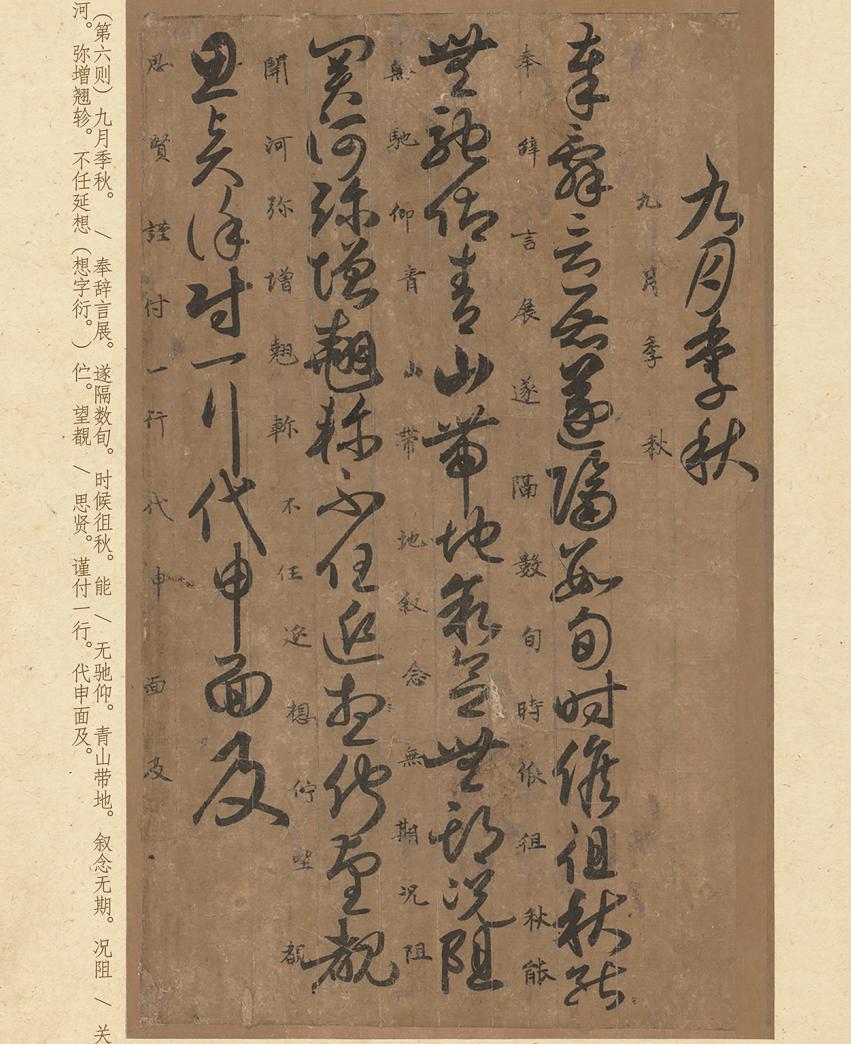 九月季秋
九月季秋
奉辭言展遂隔數旬時候徂秋能
奉辭言展遂隔數旬時候徂秋能
無馳仰青山帶地叙念無期况阻
無馳仰青山帶地叙念無期况阻
關河弥增翹軫不任延想佇望覩
開河弥增翹軫不任延想佇望覩
思賢謹付一行代申面及
思賢謹付一行代申面及
(第六则)九月季秋。/奉辞言展。遂隔数旬。时候徂秋。能/无驰仰。青山带地。叙念无期。况阻/关
河。弥增翘轸。不任延想(想字衍。)伫。望覩/思贤。谨付一行。代申面及。